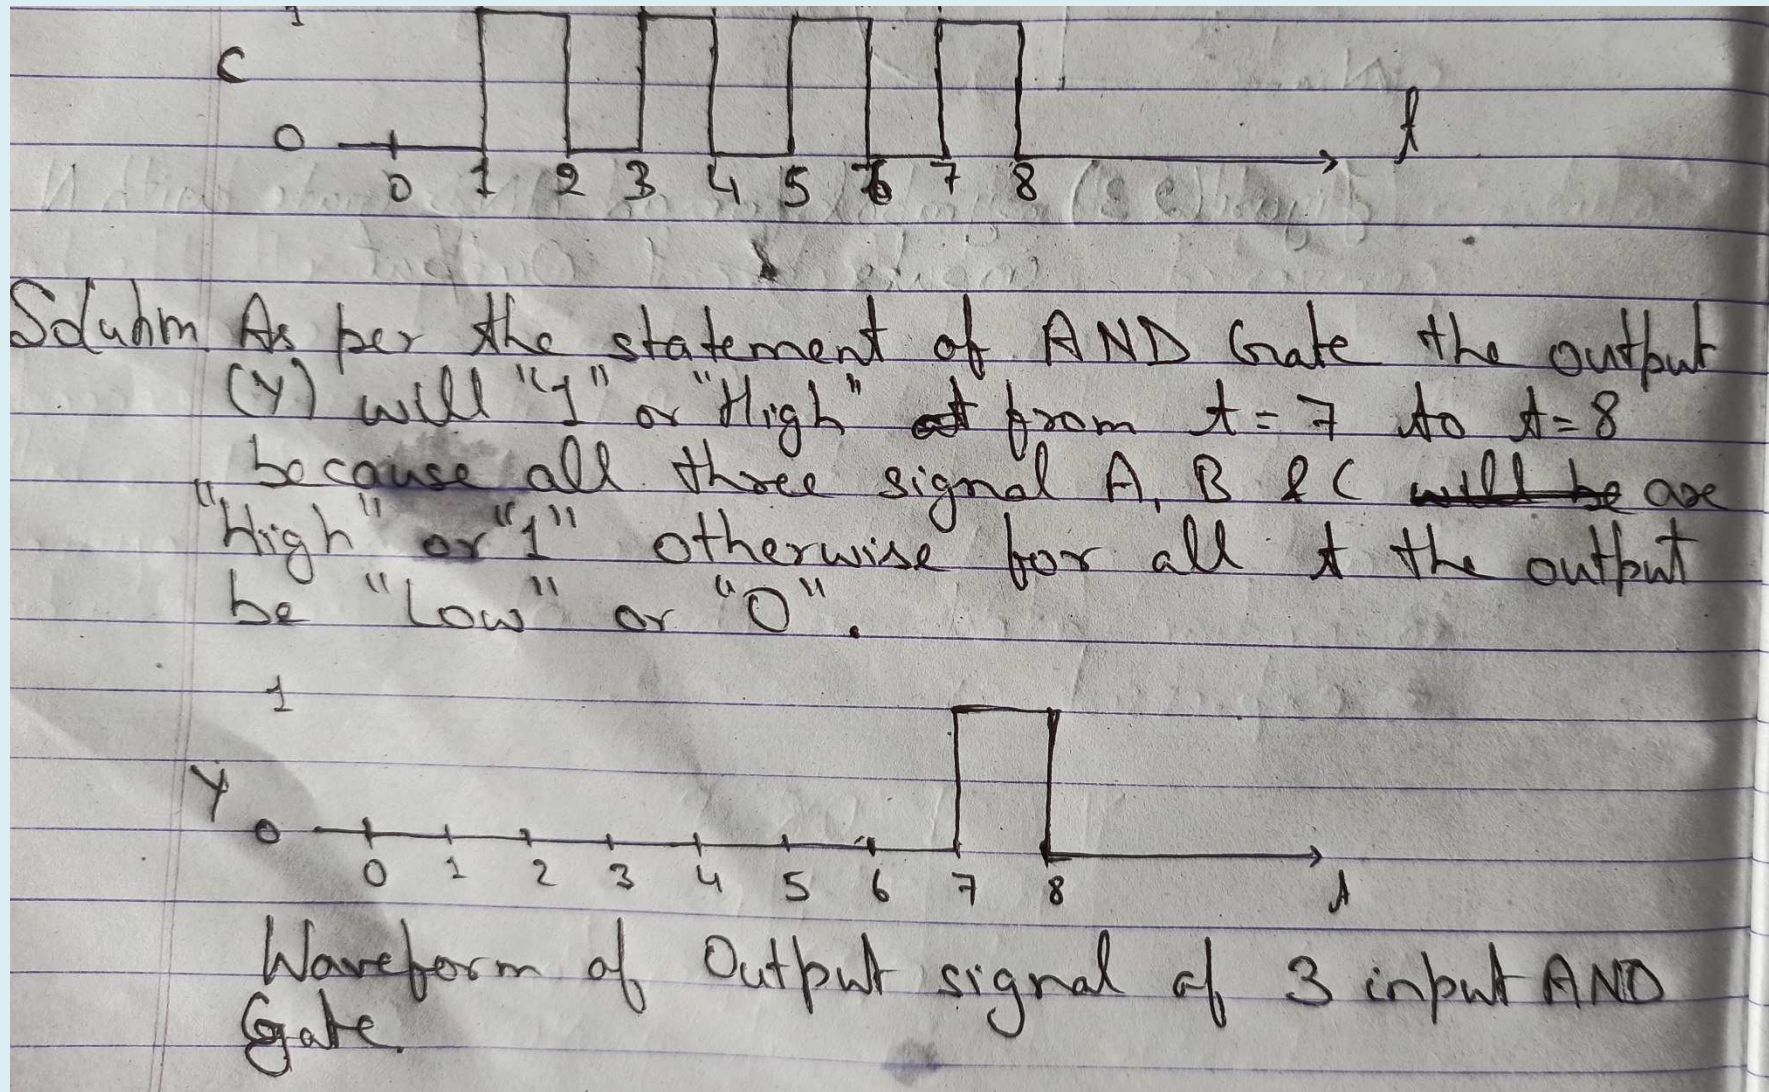 1
C
0
0 1 2 3 4 5 6 7 8
t
Solution As per the statement of AND Gate the output
(Y) will "1" or "High" from t = 7 to t = 8
because all three signal A, B & C will be are
"High" or "1" otherwise for all t the output
be "Low" or "0".
1
Y
0
0 1 2 3 4 5 6 7 8
t
Waveform of Output signal of 3 input AND
Gate.